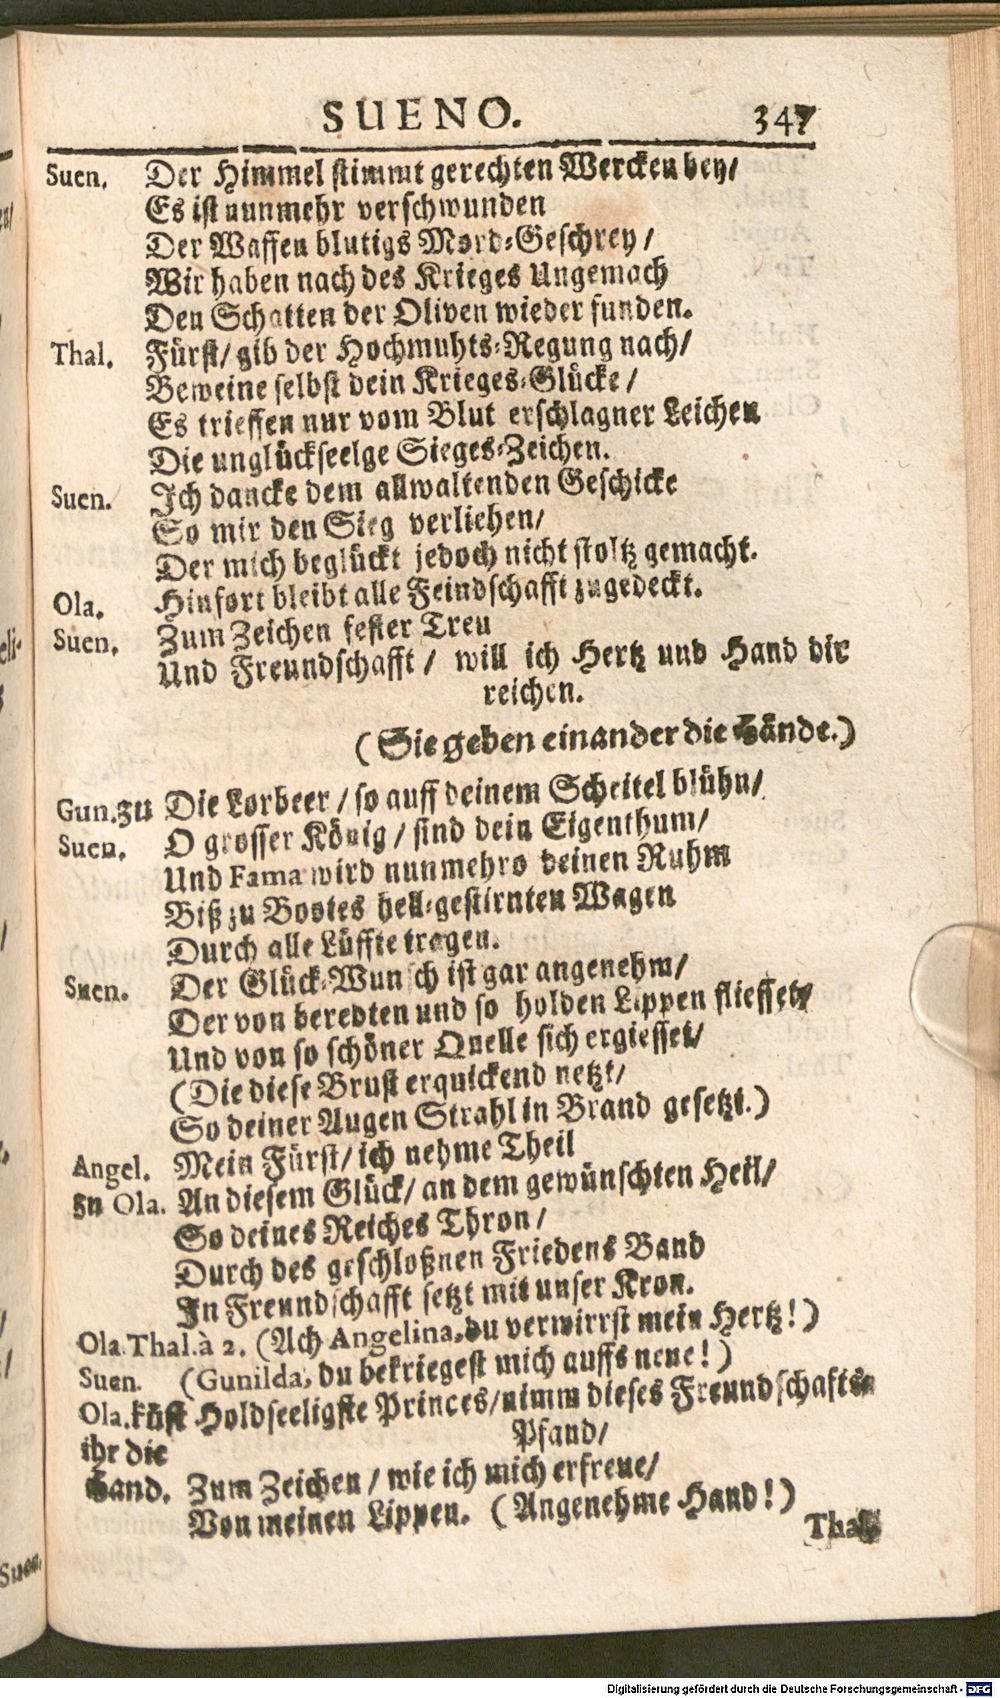 SUENO. 347
Suen. Der Himmel stimmt gerechten Wercken bey/
Es ist nunmehr verschwunden
Der Waffen blutigs Mord-Geschrey /
Wir haben nach des Krieges Ungemach
Den Schatten der Oliven wieder funden.
Thal. Fürst/ gib der Hochmuhts-Regung nach/
Beweine selbst dein Krieges-Glücke /
Es trieffen nur vom Blut erschlagner Leichen
Die unglückseelge Sieges-Zeichen.
Suen. Ich dancke dem allwaltenden Geschicke
So mir den Sieg verliehen/
Der mich beglückt jedoch nicht stoltz gemacht.
Ola. Hinfort bleibt alle Feindschafft zugedeckt.
Suen. Zum Zeichen fester Treu
Und Freundschafft / will ich Hertz und Hand dir
reichen.
(Sie geben einander die Hände.)
Gun. zu Die Lorbeer / so auff deinem Scheitel blühn/
Suen. O grosser König / sind dein Eigenthum/
Und Fama wird nunmehro deinen Ruhm
Biß zu Bootes hell-gestirnten Wagen
Durch alle Lüffte tragen.
Suen. Der Glück-Wunsch ist gar angenehm/
Der von beredten und so holden Lippen fliesset/
Und von so schöner Quelle sich ergiesset/
(Die diese Brust erquickend netzt/
So deiner Augen Strahl in Brand gesetzt.)
Angel. Mein Fürst/ ich nehme Theil
zu Ola. An diesem Glück/ an dem gewünschten Heil/
So deines Reiches Thron /
Durch des geschloßnen Friedens Band
In Freundschafft setzt mit unser Kron.
Ola. Thal. à 2. (Ach Angelina, du verwirrst mein Hertz!)
Suen. (Gunilda, du bekriegest mich auffs neue!)
Ola. küst Holdseeligste Princes/ nimm dieses Freundschafts-
ihr die Pfand/
Hand. Zum Zeichen / wie ich mich erfreue/
Von meinen Lippen. (Angenehme Hand!)
Thal.
Suen.
Digitalisierung gefördert durch die Deutsche Forschungsgemeinschaft - DFG